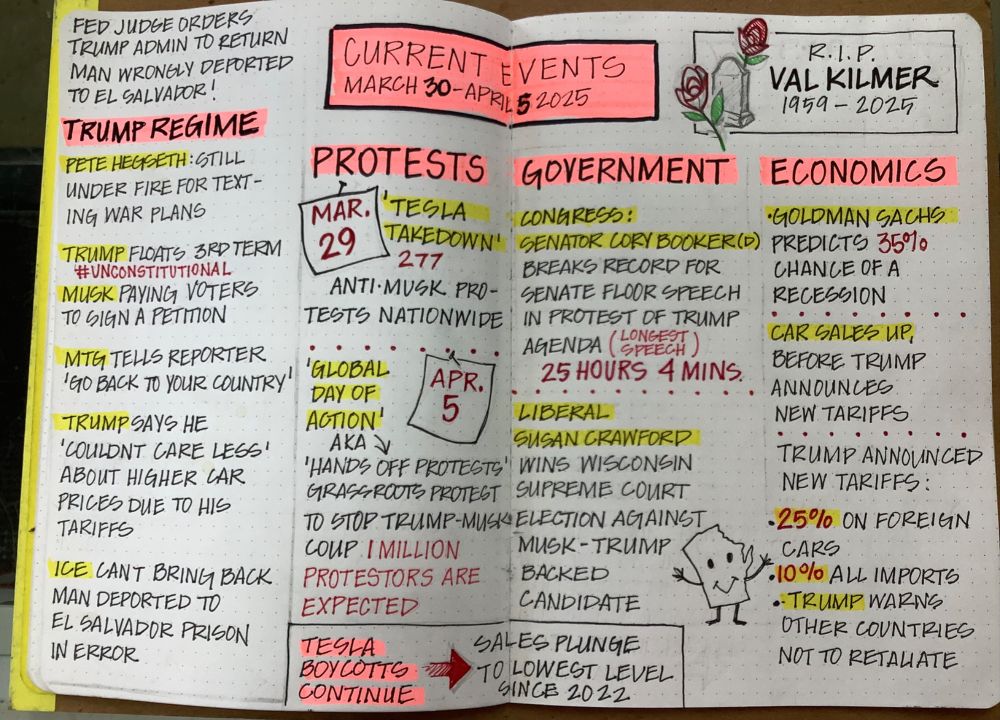 FED JUDGE ORDERS
TRUMP ADMIN TO RETURN
MAN WRONGLY DEPORTED
TO EL SALVADOR!
TRUMP REGIME
PETE HEGSETH: STILL
UNDER FIRE FOR TEXT-
ING WAR PLANS
TRUMP FLOATS 3RD TERM
#UNCONSTITUTIONAL
MUSK PAYING VOTERS
TO SIGN A PETITION
MTG TELLS REPORTER
'GO BACK TO YOUR COUNTRY'
TRUMP SAYS HE
'COULDNT CARE LESS'
ABOUT HIGHER CAR
PRICES DUE TO HIS
TARIFFS
ICE CANT BRING BACK
MAN DEPORTED TO
EL SALVADOR PRISON
IN ERROR
CURRENT EVENTS
MARCH 30-APRIL 5 2025
R.I.P.
VAL KILMER
1959 - 2025
PROTESTS
MAR.
29
'TESLA
TAKEDOWN'
277
ANTI-MUSK PRO-
TESTS NATIONWIDE
'GLOBAL
DAY OF
ACTION'
APR.
5
AKA
'HANDS OFF PROTESTS'
GRASSROOTS PROTEST
TO STOP TRUMP-MUSK
COUP 1 MILLION
PROTESTORS ARE
EXPECTED
TESLA
BOYCOTTS
CONTINUE
SALES PLUNGE
TO LOWEST LEVEL
SINCE 2022
GOVERNMENT
CONGRESS:
SENATOR CORY BOOKER(D)
BREAKS RECORD FOR
SENATE FLOOR SPEECH
IN PROTEST OF TRUMP
AGENDA (LONGEST
SPEECH)
25 HOURS 4 MINS.
LIBERAL
SUSAN CRAWFORD
WINS WISCONSIN
SUPREME COURT
ELECTION AGAINST
MUSK-TRUMP
BACKED
CANDIDATE
ECONOMICS
•GOLDMAN SACHS
PREDICTS 35%
CHANCE OF A
RECESSION
CAR SALES UP,
BEFORE TRUMP
ANNOUNCES
NEW TARIFFS
TRUMP ANNOUNCED
NEW TARIFFS:
•25% ON FOREIGN
CARS
•10% ALL IMPORTS
•TRUMP WARNS
OTHER COUNTRIES
NOT TO RETALIATE